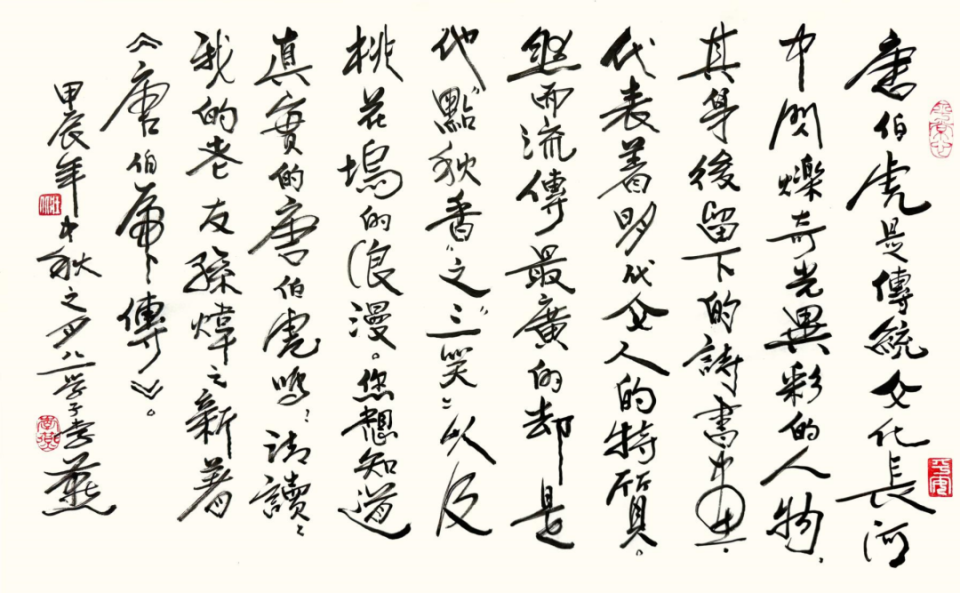 唐伯虎是傳統文化長河
中閃爍奇光異彩的人物，
其身後留下的詩書中畫，
代表着明代文人的特质。
然而流傳最廣的却是
他“點秋香”之“三笑”以及
桃花塢的浪漫。您想知道
真實的唐伯虎嗎？請讀
我的老友孫煒之新著
《唐伯虎傳》。
甲辰年中秋之夕八二学子李燕